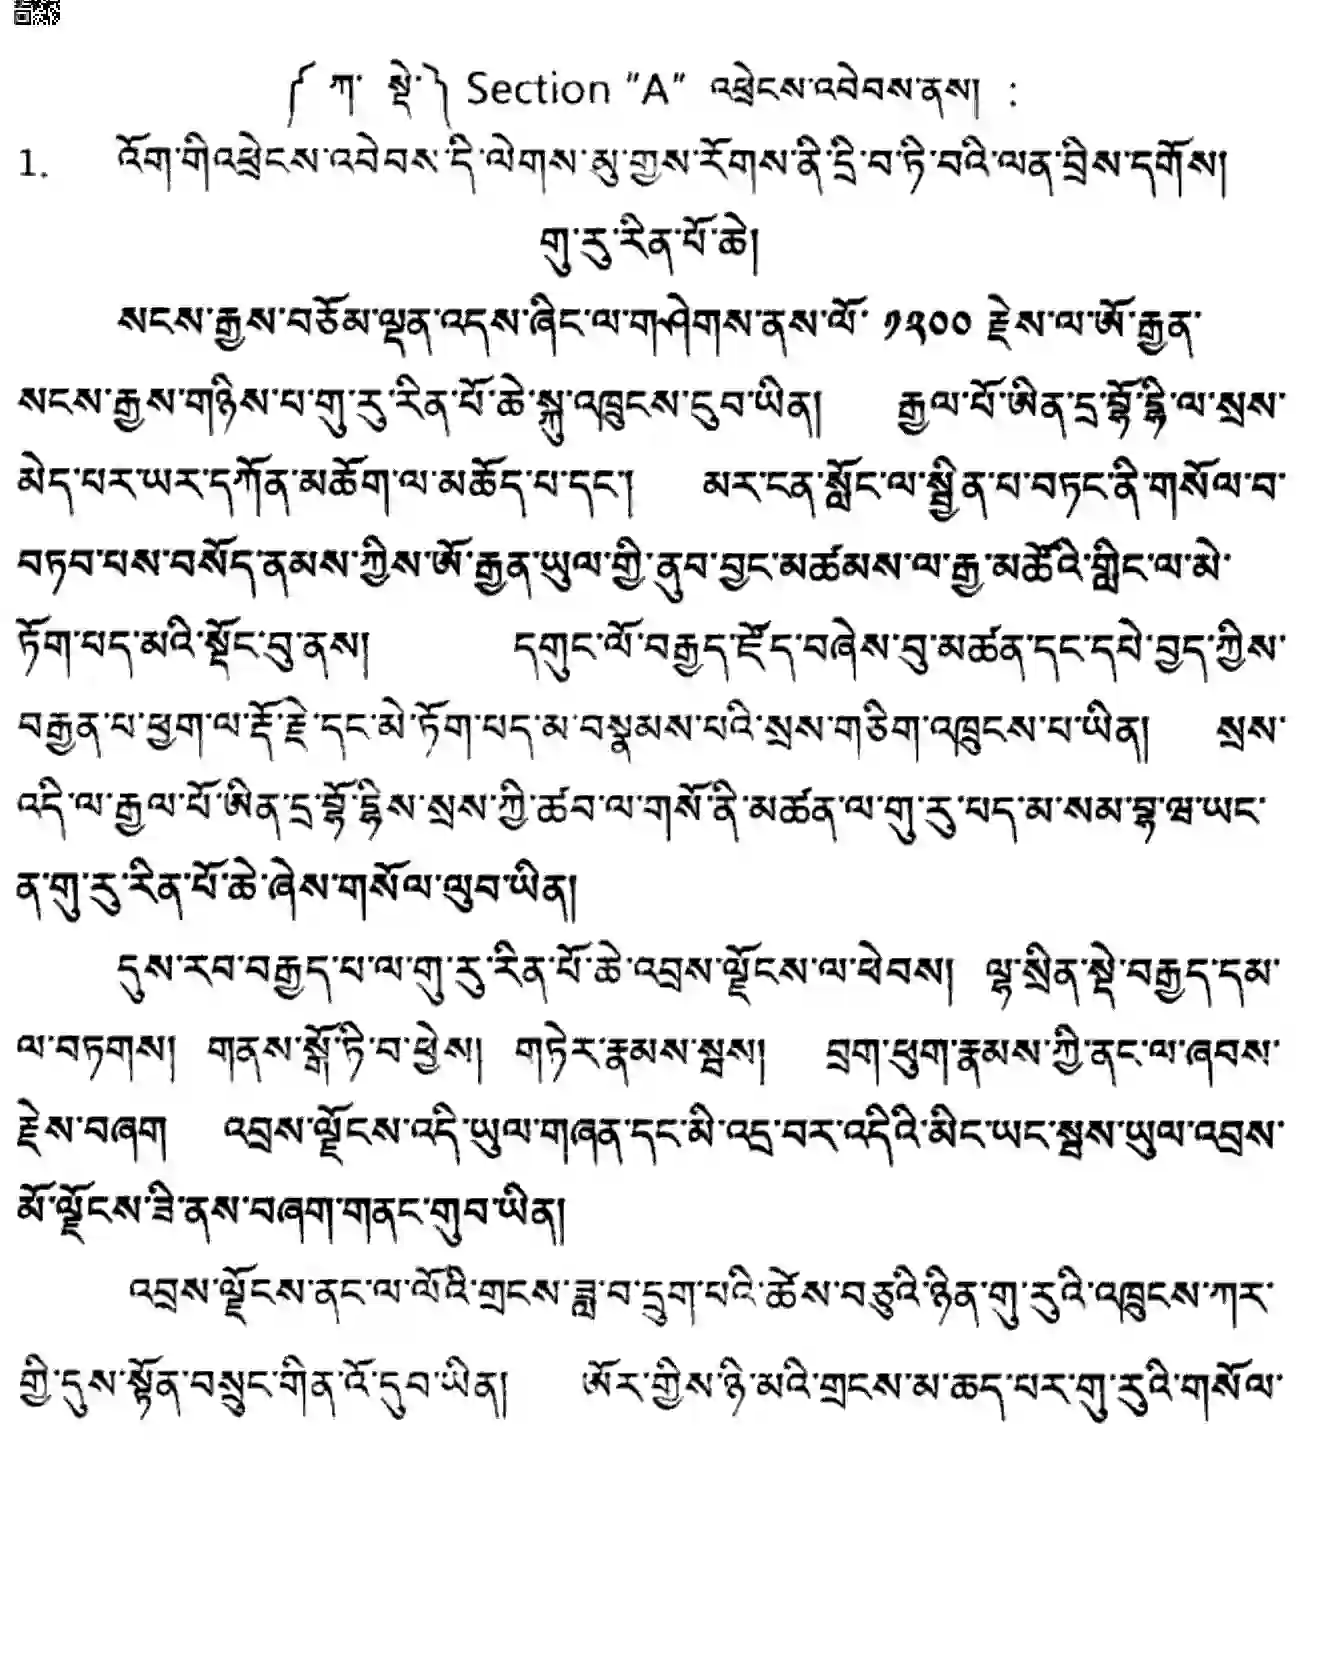 ༼ ཀ་ སྡེ་༽ Section "A" འཕྲེངས་འབེབས་ནས། :
1. འོག་གིའཕྲེངས་འབེབས་དི་ལེགས་མུ་གྱས་རོགས་ནི་དྲི་བ་ཏི་བའི་ལན་བྲིས་དགོས།
གུ་རུ་རིན་པོ་ཆེ།
སངས་རྒྱས་བཅོམ་ལྡན་འདས་ཞིང་ལ་གཤེགས་ནས་ལོ་ ༡༢༠༠ རྗེས་ལ་ཨོ་རྒྱན་
སངས་རྒྱས་གཉིས་པ་གུ་རུ་རིན་པོ་ཆེ་སྐུ་འཁྲུངས་དུབ་ཡིན། རྒྱལ་པོ་ཨིན་དྲ་བྷོ་དྷི་ལ་སྲས་
མེད་པར་ཡར་དཀོན་མཆོག་ལ་མཆོད་པ་དང་། མར་ངན་སློང་ལ་སྦྱིན་པ་བཏང་ནི་གསོལ་བ་
བཏབ་པས་བསོད་ནམས་ཀྱིས་ཨོ་རྒྱན་ཡུལ་གྱི་ནུབ་བྱང་མཚམས་ལ་རྒྱ་མཚོའི་གླིང་ལ་མེ་
ཏོག་པད་མའི་སྡོང་བུ་ནས། དགུང་ལོ་བརྒྱད་ཛོད་བཞེས་བུ་མཚན་དང་དཔེ་བྱད་ཀྱིས་
བརྒྱན་པ་ཕྱག་ལ་རྡོ་རྗེ་དང་མེ་ཏོག་པད་མ་བསྣམས་པའི་སྲས་གཅིག་འཁྲུངས་པ་ཡིན། སྲས་
འདི་ལ་རྒྱལ་པོ་ཨིན་དྲ་བྷོ་དྷིས་སྲས་ཀྱི་ཚབ་ལ་གསོ་ནི་མཚན་ལ་གུ་རུ་པད་མ་སམ་བྷ་ཝ་ཡང་
ན་གུ་རུ་རིན་པོ་ཆེ་ཞེས་གསོལ་ལུབ་ཡིན།
དུས་རབ་བརྒྱད་པ་ལ་གུ་རུ་རིན་པོ་ཆེ་འབྲས་ལྗོངས་ལ་ཕེབས། ལྷ་སྲིན་སྡེ་བརྒྱད་དམ་
ལ་བཏགས། གནས་སྒོ་ཏི་བ་ཕྱེས། གཏེར་རྣམས་སྦས། བྲག་ཕུག་རྣམས་ཀྱི་ནང་ལ་ཞབས་
རྗེས་བཞག འབྲས་ལྗོངས་འདི་ཡུལ་གཞན་དང་མི་འདྲ་བར་འདིའི་མིང་ཡང་སྦས་ཡུལ་འབྲས་
མོ་ལྗོངས་ཟི་ནས་བཞག་གནང་གུབ་ཡིན།
འབྲས་ལྗོངས་ནང་ལ་ལོའི་གྲངས་ཟླ་བ་དྲུག་པའི་ཚེས་བཅུའི་ཉིན་གུ་རུའི་འཁྲུངས་ཀར་
གྱི་དུས་སྟོན་བསྲུང་གིན་འོ་དུབ་ཡིན། ཨོར་གྱིས་ཉི་མའི་གྲངས་མ་ཆད་པར་གུ་རུའི་གསོལ་